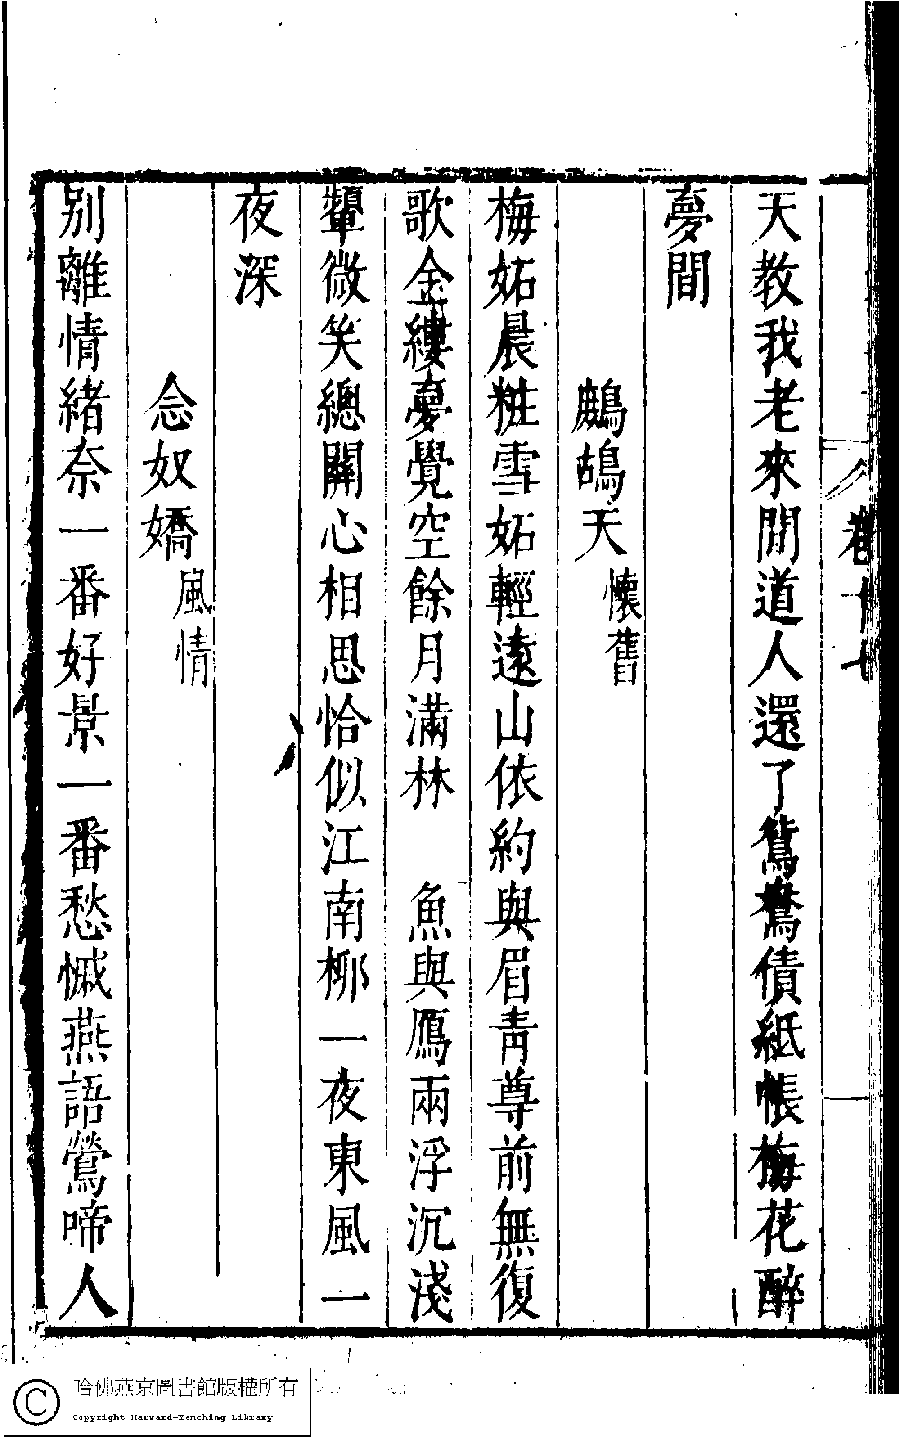 卷十七
天教我老來閒道人還了鴛鴦債紙帳梅花醉
夢間
鷓鴣天懷舊
梅妬晨粧雪妬輕遠山依約與眉青尊前無復
歌金縷夢覺空餘月滿林　魚與鴈兩浮沉淺
顰微笑總關心相思恰似江南柳一夜東風一
夜深
念奴嬌風情
别離情緒奈一番好景一番愁慽燕語鶯啼人
哈佛燕京圖書館版權所有
Copyright Harvard-Yenching Library